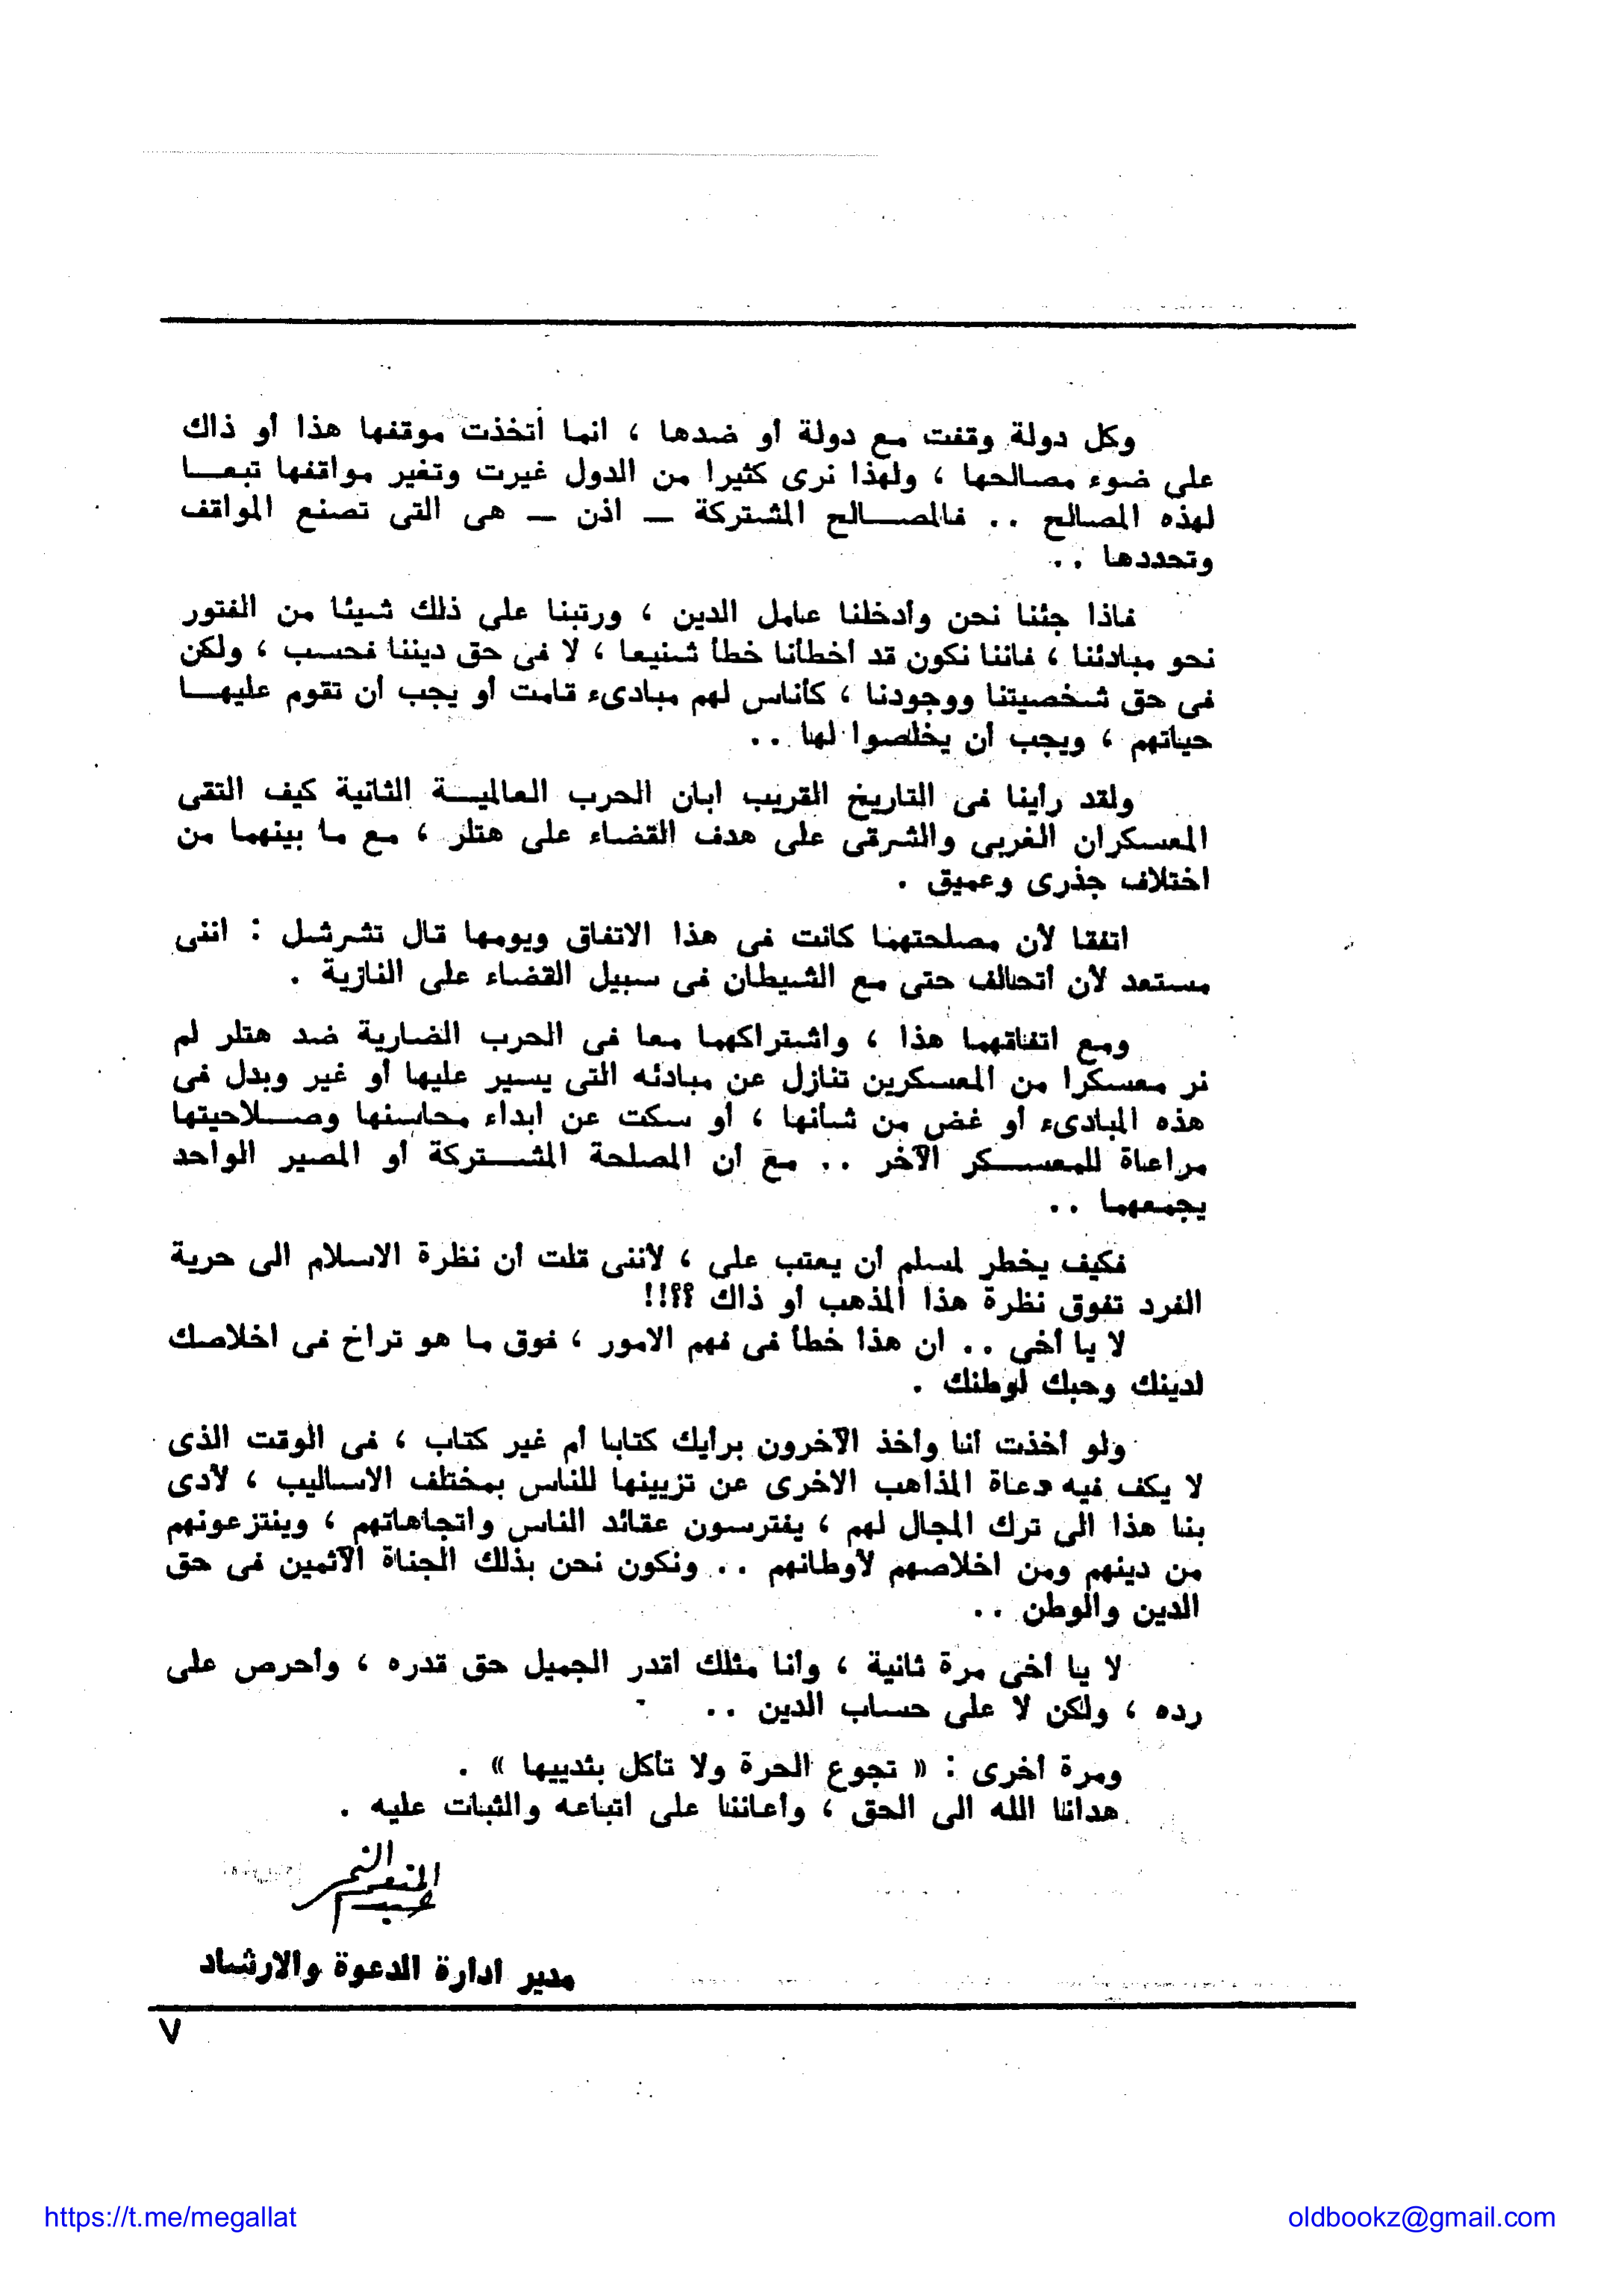 وكل دولة وقفت مع دولة أو ضدها ، انما أتخذت موقفها هذا أو ذاك
على ضوء مصالحها ، ولهذا نرى كثيرا من الدول غيرت وتغير مواقفها تبعـــا
لهذه المصالح .. فالمصـــالح المشتركة ــ اذن ــ هى التى تصنع المواقف
وتحددها ..
فاذا جئنا نحن وأدخلنا عامل الدين ، ورتبنا على ذلك شيئا من الفتور
نحو مبادئنا ، فاننا نكون قد أخطأنا خطأ شنيعا ، لا فى حق ديننا فحسب ، ولكن
فى حق شخصيتنا ووجودنا ، كأناس لهم مبادىء قامت أو يجب أن تقوم عليهـــا
حياتهم ، ويجب أن يخلصوا لها ..
ولقد رأينا فى التاريخ القريب ابان الحرب العالميـــة الثانية كيف التقى
المعسكران الغربى والشرقى على هدف القضاء على هتلر ، مع ما بينهما من
اختلاف جذرى وعميق .
اتفقا لأن مصلحتهما كانت فى هذا الاتفاق ويومها قال تشرشل : اننى
مستعد لأن أتحالف حتى مع الشيطان فى سبيل القضاء على النازية .
ومع اتفاقهما هذا ، واشتراكهما معا فى الحرب الضارية ضد هتلر لم
نر معسكرا من المعسكرين تنازل عن مبادئه التى يسير عليها أو غير وبدل فى
هذه المبادىء أو غض من شأنها ، أو سكت عن ابداء محاسنها وصـــلاحيتها
مراعاة للمعســـكر الآخر .. مع أن المصلحة المشـــتركة أو المصير الواحد
يجمعهما ..
فكيف يخطر لمسلم أن يعتب على ، لأننى قلت أن نظرة الاسلام الى حرية
الفرد تفوق نظرة هذا المذهب أو ذاك ؟؟!!
لا يا أخى .. ان هذا خطأ فى فهم الامور ، فوق ما هو تراخ فى اخلاصك
لدينك وحبك لوطنك .
ولو أخذت أنا وأخذ الآخرون برأيك كتابا أم غير كتاب ، فى الوقت الذى
لا يكف فيه دعاة المذاهب الاخرى عن تزيينها للناس بمختلف الاساليب ، لأدى
بنا هذا الى ترك المجال لهم ، يفترسون عقائد الناس واتجاهاتهم ، وينتزعونهم
من دينهم ومن اخلاصهم لأوطانهم .. ونكون نحن بذلك الجناة الآثمين فى حق
الدين والوطن ..
لا يا أخى مرة ثانية ، وأنا مثلك أقدر الجميل حق قدره ، وأحرص على
رده ، ولكن لا على حساب الدين ..
ومرة أخرى : « تجوع الحرة ولا تأكل بثدييها » .
هدانا الله الى الحق ، وأعاننا على اتباعه والثبات عليه .
عبد المنعم النمر
مدير ادارة الدعوة والارشاد
٧
https://t.me/megallat
oldbookz@gmail.com